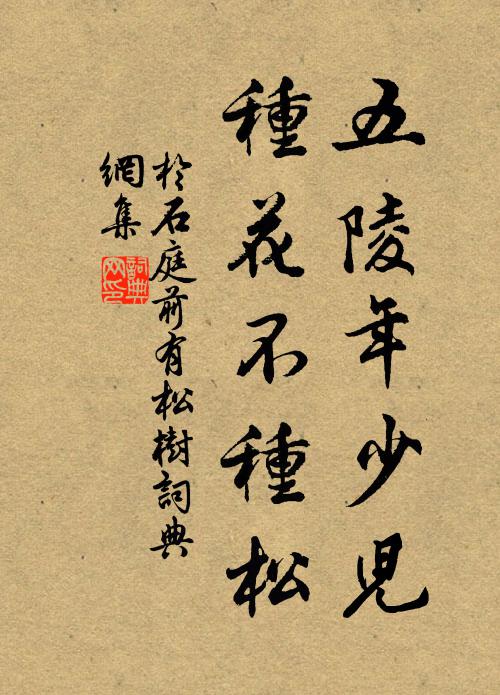 五陵年少児
種花不種松
於石庭前有松樹詞典
網集
詞典
网印